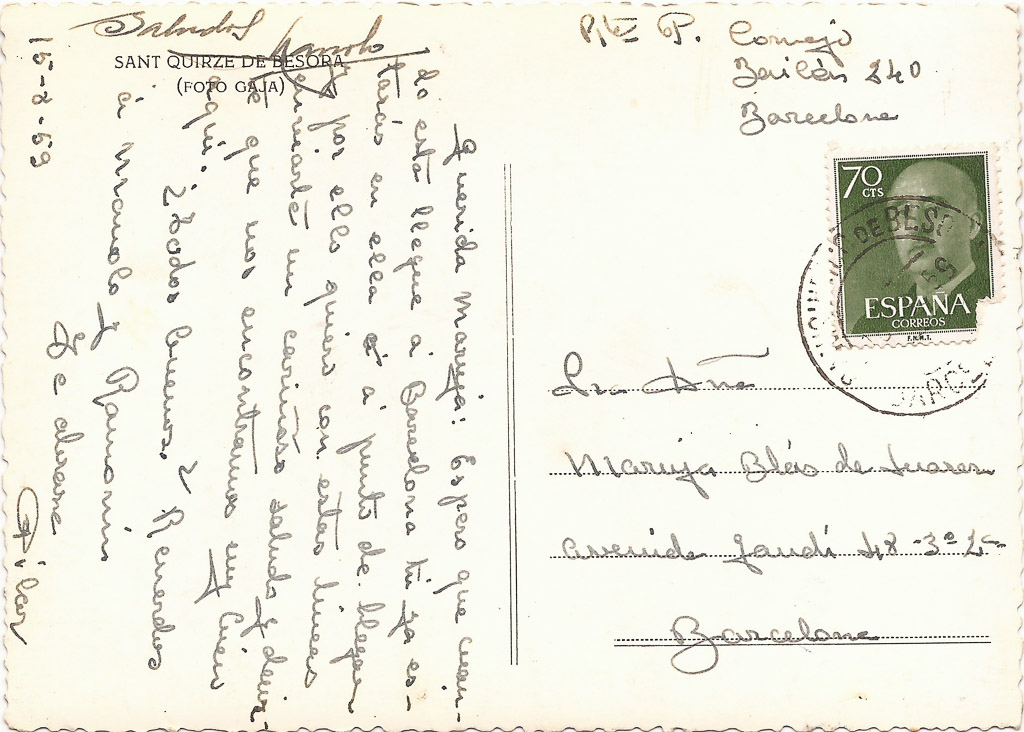 Saludos Manolo
SANT QUIRZE DE BESORA
(FOTO GAJA)
15-8-59
Querida Maruja: Espero que cuan-
do esta llegue á Barcelona tu ya es-
tarás en ella ó á punto de llegar
y por ello quiero con estas lineas
enviarte un cariñoso saludo y decir-
te que nos encontramos muy bien
aquí. ¿Todos buenos? Recuerdos
á Manolo y Ramonin
Te abraza
Pilar
Rte P. Cornejo
Bailén 240
Barcelona
70
CTS
ESPAÑA
CORREOS
F.N.M.T.
DE BESO
59
BARCE
Sra Dña
Maruja Blás de Suarez
Avenida Gaudí 48-3º 2ª
Barcelona